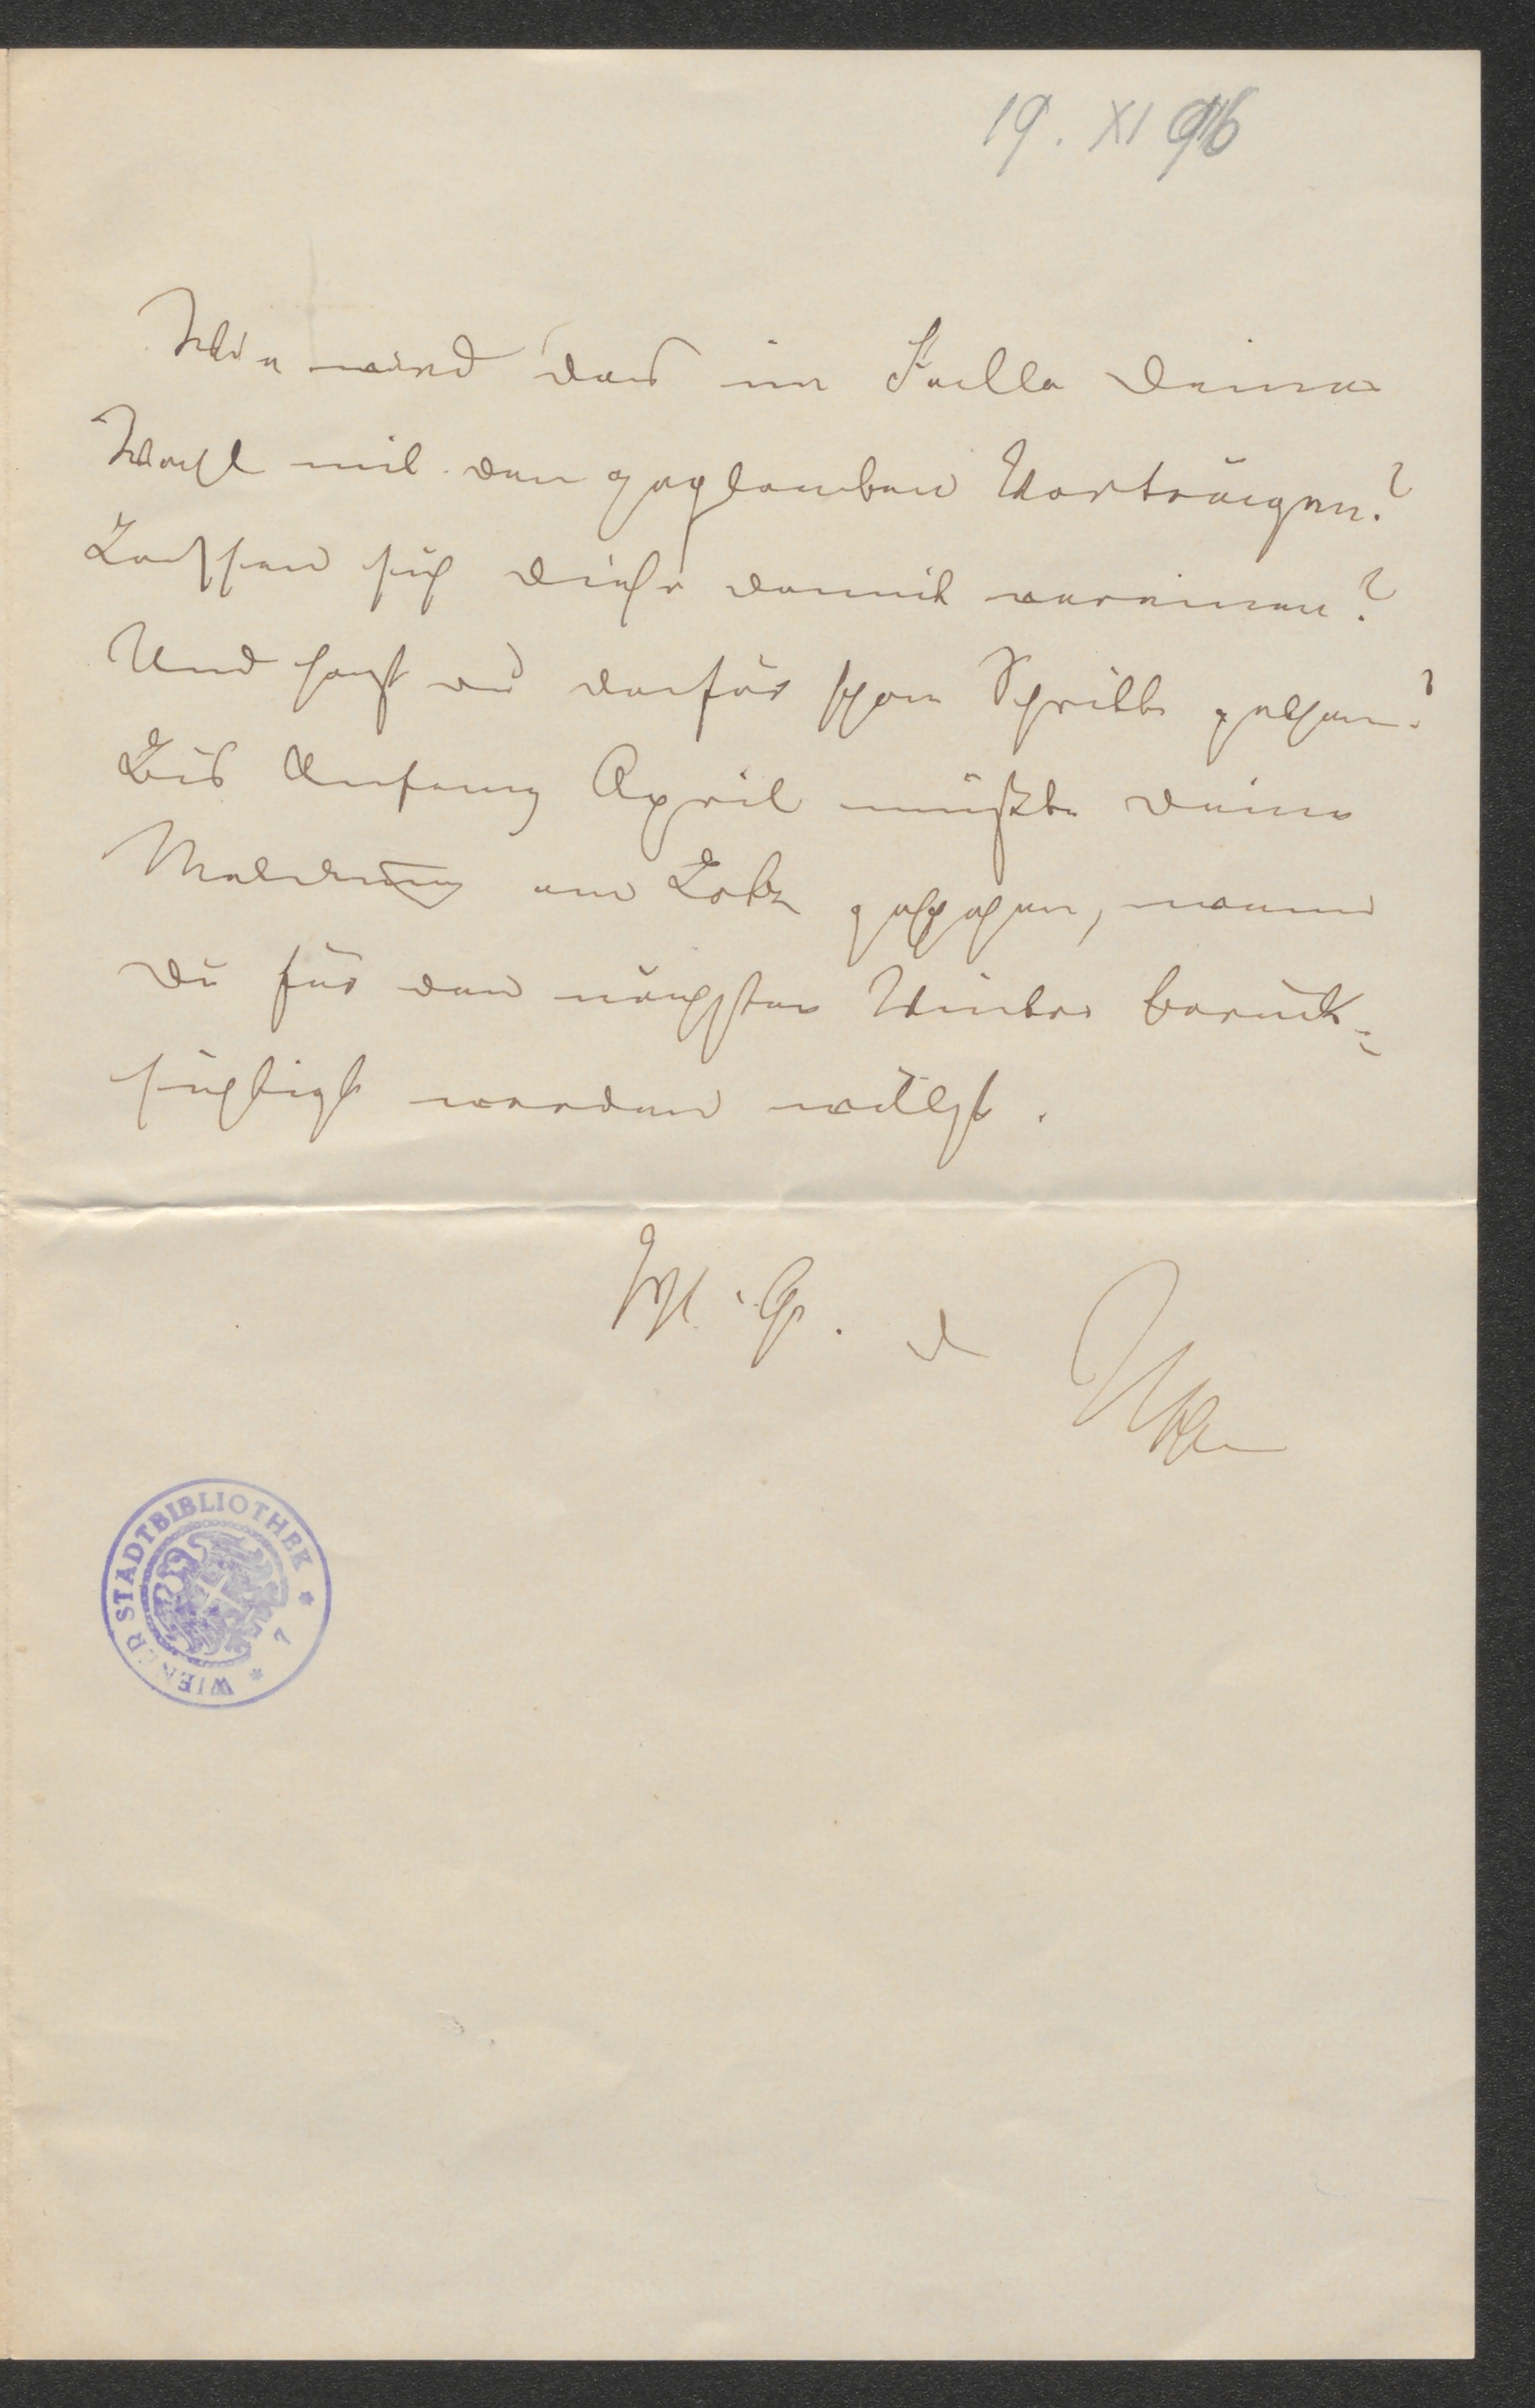 19. XI 96
Wie wird das im Falle Deiner
Wahl mit den geplanten Vorträgen?
Lassen sich diese damit vereinen?
Und hast du dafür schon Schritte gethan?
Bis Anfang April müßte deine
Meldung an Lotz geschehen, wenn
du für den nächsten Winter berück-
sichtigt werden willst.
Hzl. Gr. d
WIENER STADTBIBLIOTHEK * 7 *